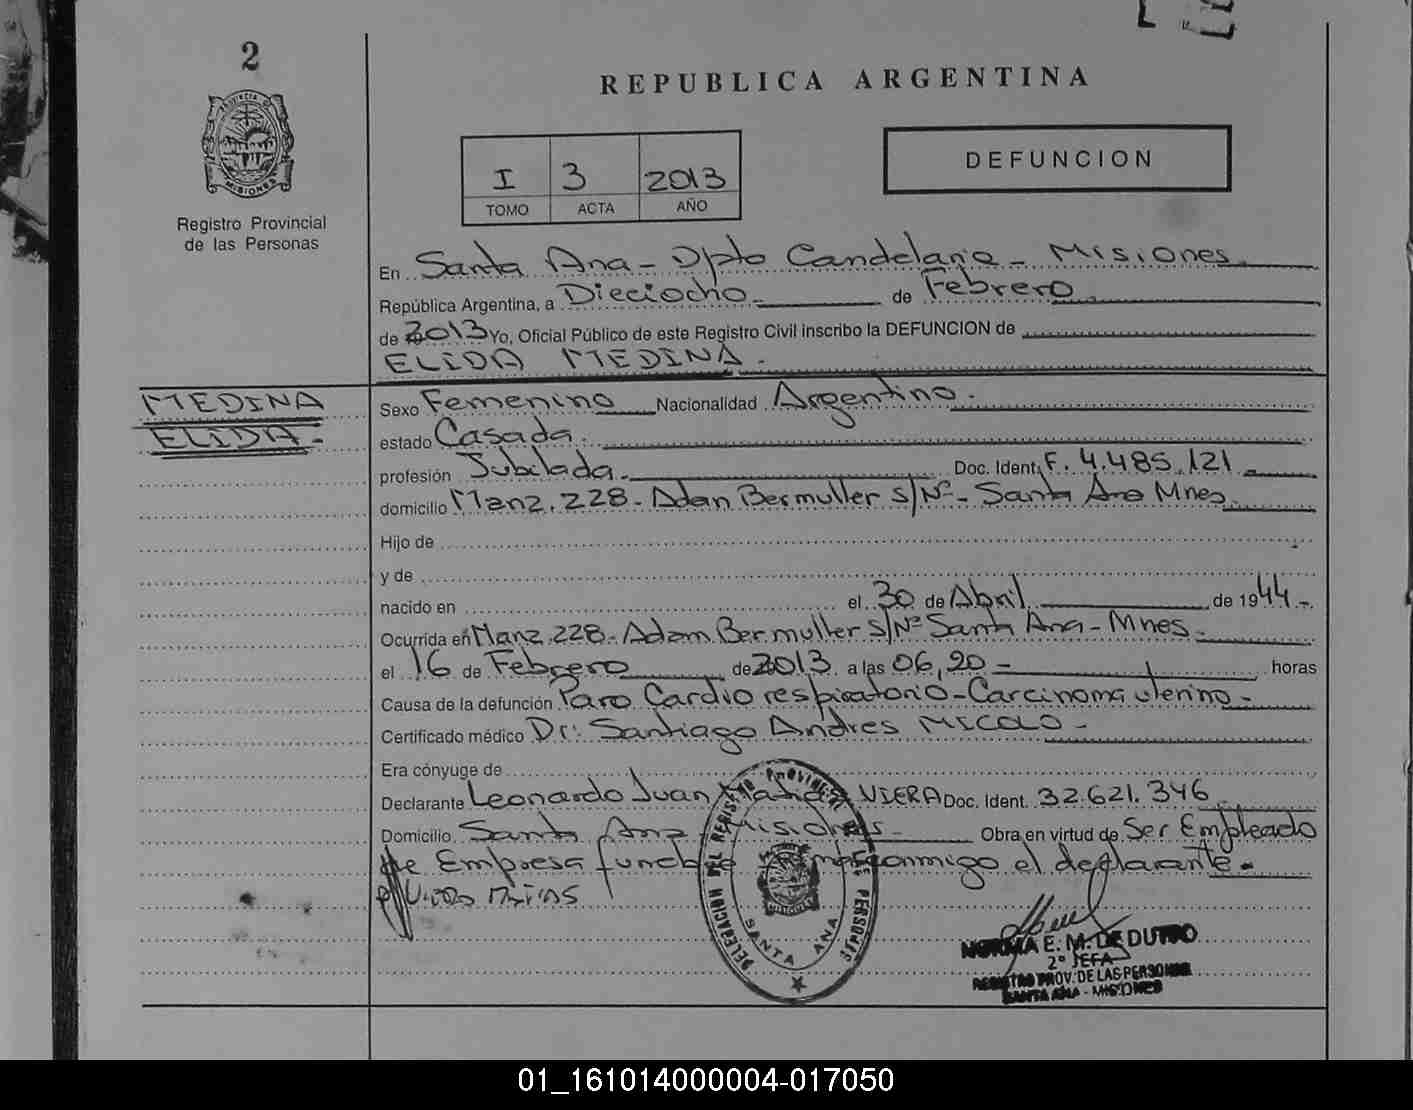 2
REPUBLICA ARGENTINA
PROVINCIA DE
MISIONES
Registro Provincial
de las Personas
I 3 2013
TOMO ACTA AÑO
DEFUNCION
En Santa Ana - Dpto Candelaria - Misiones
República Argentina, a Dieciocho de Febrero
de 2013 Yo, Oficial Público de este Registro Civil inscribo la DEFUNCION de
ELIDA MEDINA.
MEDINA
ELIDA.-
Sexo Femenino Nacionalidad Argentino.
estado Casada.
profesión Jubilada. Doc. Ident. F. 4.485.121
domicilio Manz. 228 - Adan Bermuller s/Nº - Santa Ana Mnes.
Hijo de
y de
nacido en el 30 de Abril de 1944.-
Ocurrida en Manz. 228 - Adam Bermuller S/Nº Santa Ana - Mnes.
el 16 de Febrero de 2013 a las 06,20 - horas
Causa de la defunción Paro Cardio respiratorio - Carcinoma uterino -
Certificado médico Dr: Santiago Andres MICOLO -
Era cónyuge de
Declarante Leonardo Juan VIERA Doc. Ident. 32.621.346
Domicilio Santa Ana - Misiones - Obra en virtud de Ser Empleado
de Empresa conmigo el declarante -
DELEGACION DEL REGISTRO PROVINCIAL DE PERSONAS
SANTA ANA
NORMA E. M. DE DUTRO
2º JEFA
REGISTRO PROV. DE LAS PERSONAS
SANTA ANA - MISIONES
01_161014000004-017050